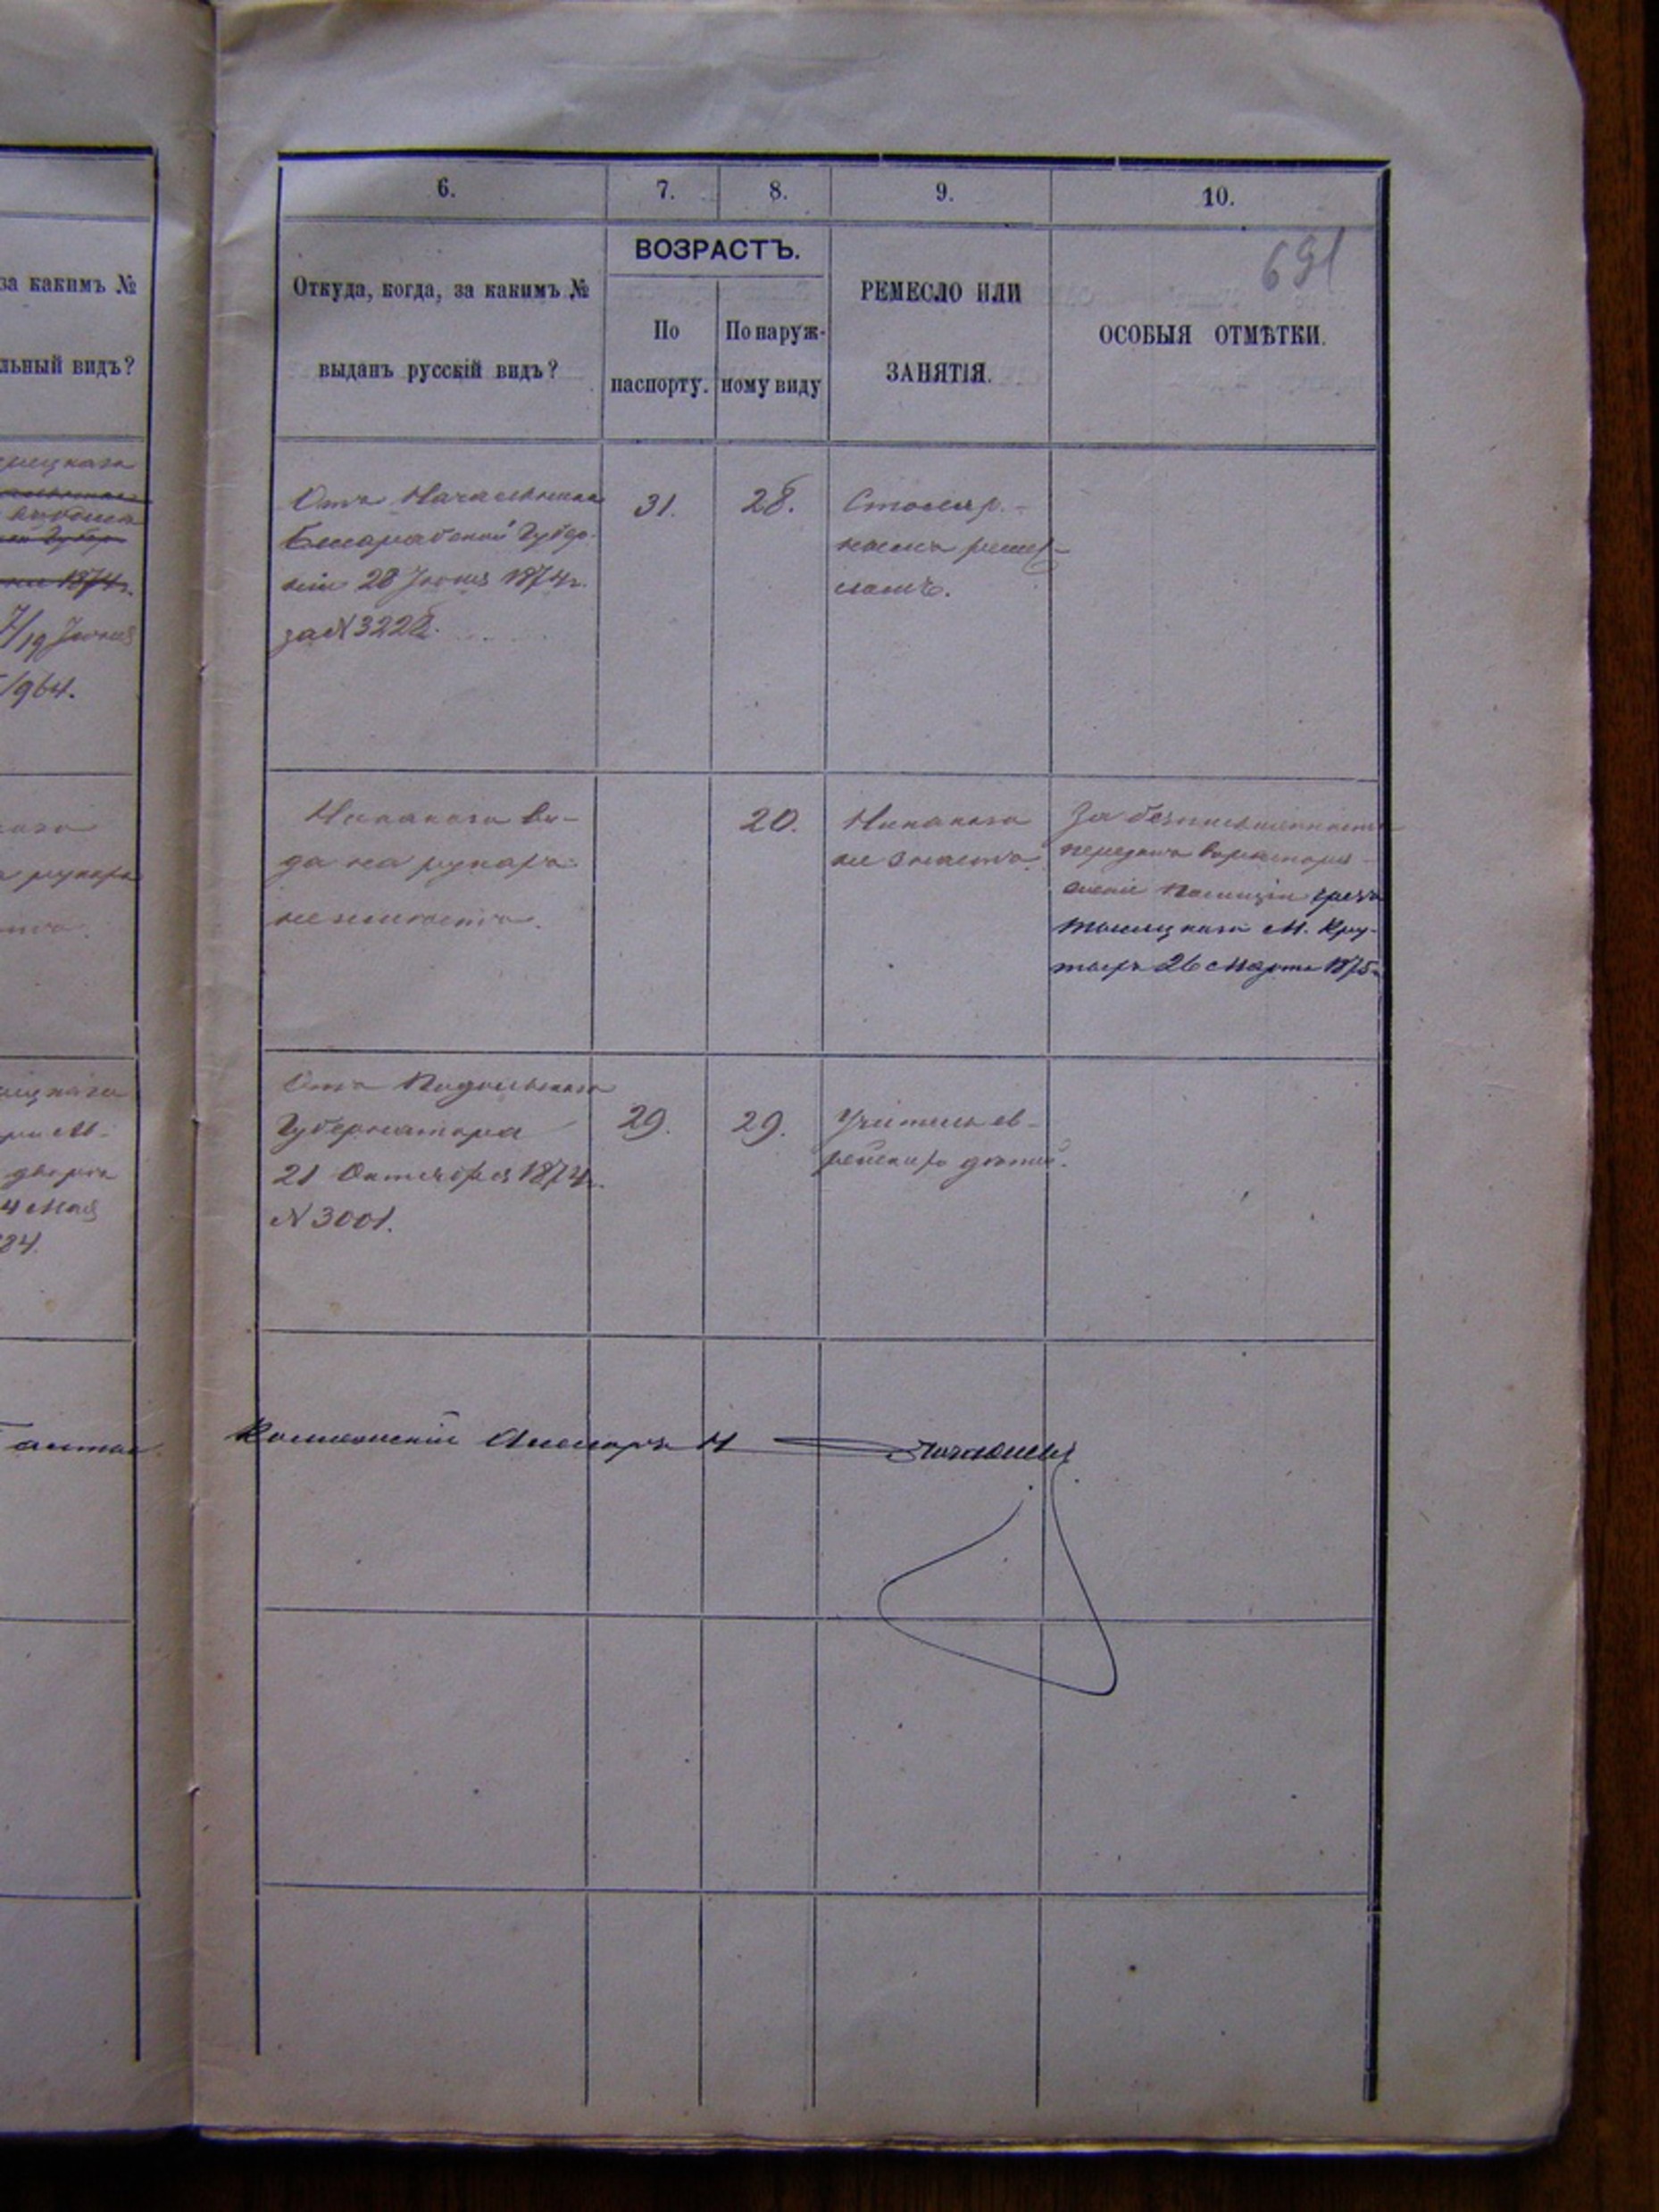 за какимъ №
льный видъ?
1874г.
7/19 Іюня
/964.
4 Мая
84.
6.
7.
8.
9.
10.
691
Откуда, когда, за какимъ №
выданъ русскій видъ?
ВОЗРАСТЪ.
По
паспорту.
По наруж-
ному виду
РЕМЕСЛО ИЛИ
ЗАНЯТІЯ.
ОСОБЫЯ ОТМѢТКИ.
Отъ Начальника
Бессарабской Губер-
ніи 28 Іюня 1874г.
за №3228.
31.
28.
Столяр-
нымъ ремес-
ломъ.
Никакого ви-
да на рукахъ
не имѣетъ.
20.
Никакого
не знаетъ.
За безписьменность
переданъ въ распоряж-
еніе Полиціи чрезъ
М. Кру-
26 Марта 1875г.
Отъ Подольскаго
Губернатора
21 Октября 1874г.
№3001.
29.
29.
Учитель ев-
рейскихъ дѣтей.